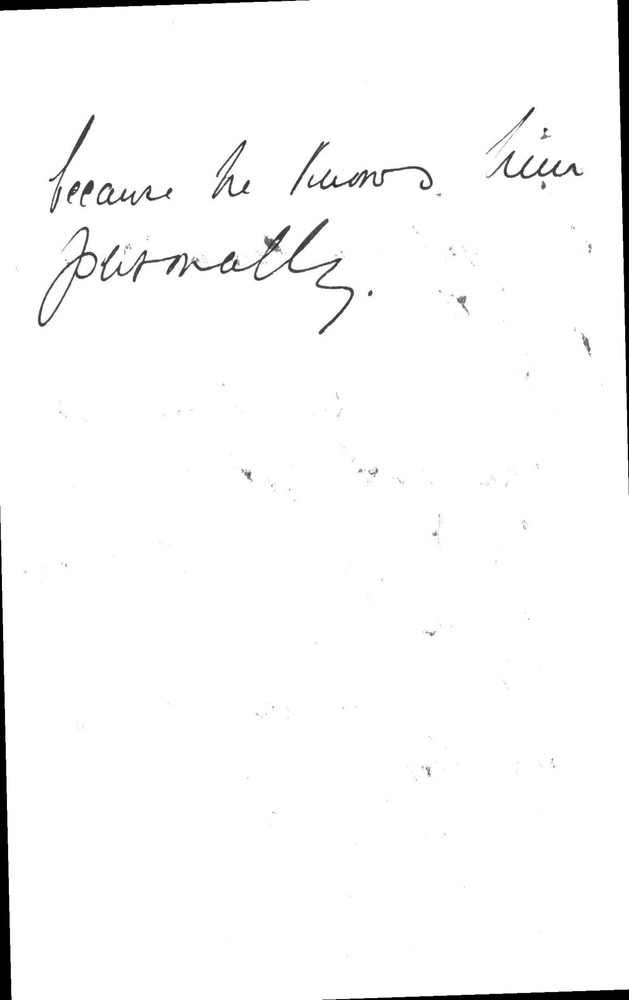 because he knows him
personally.